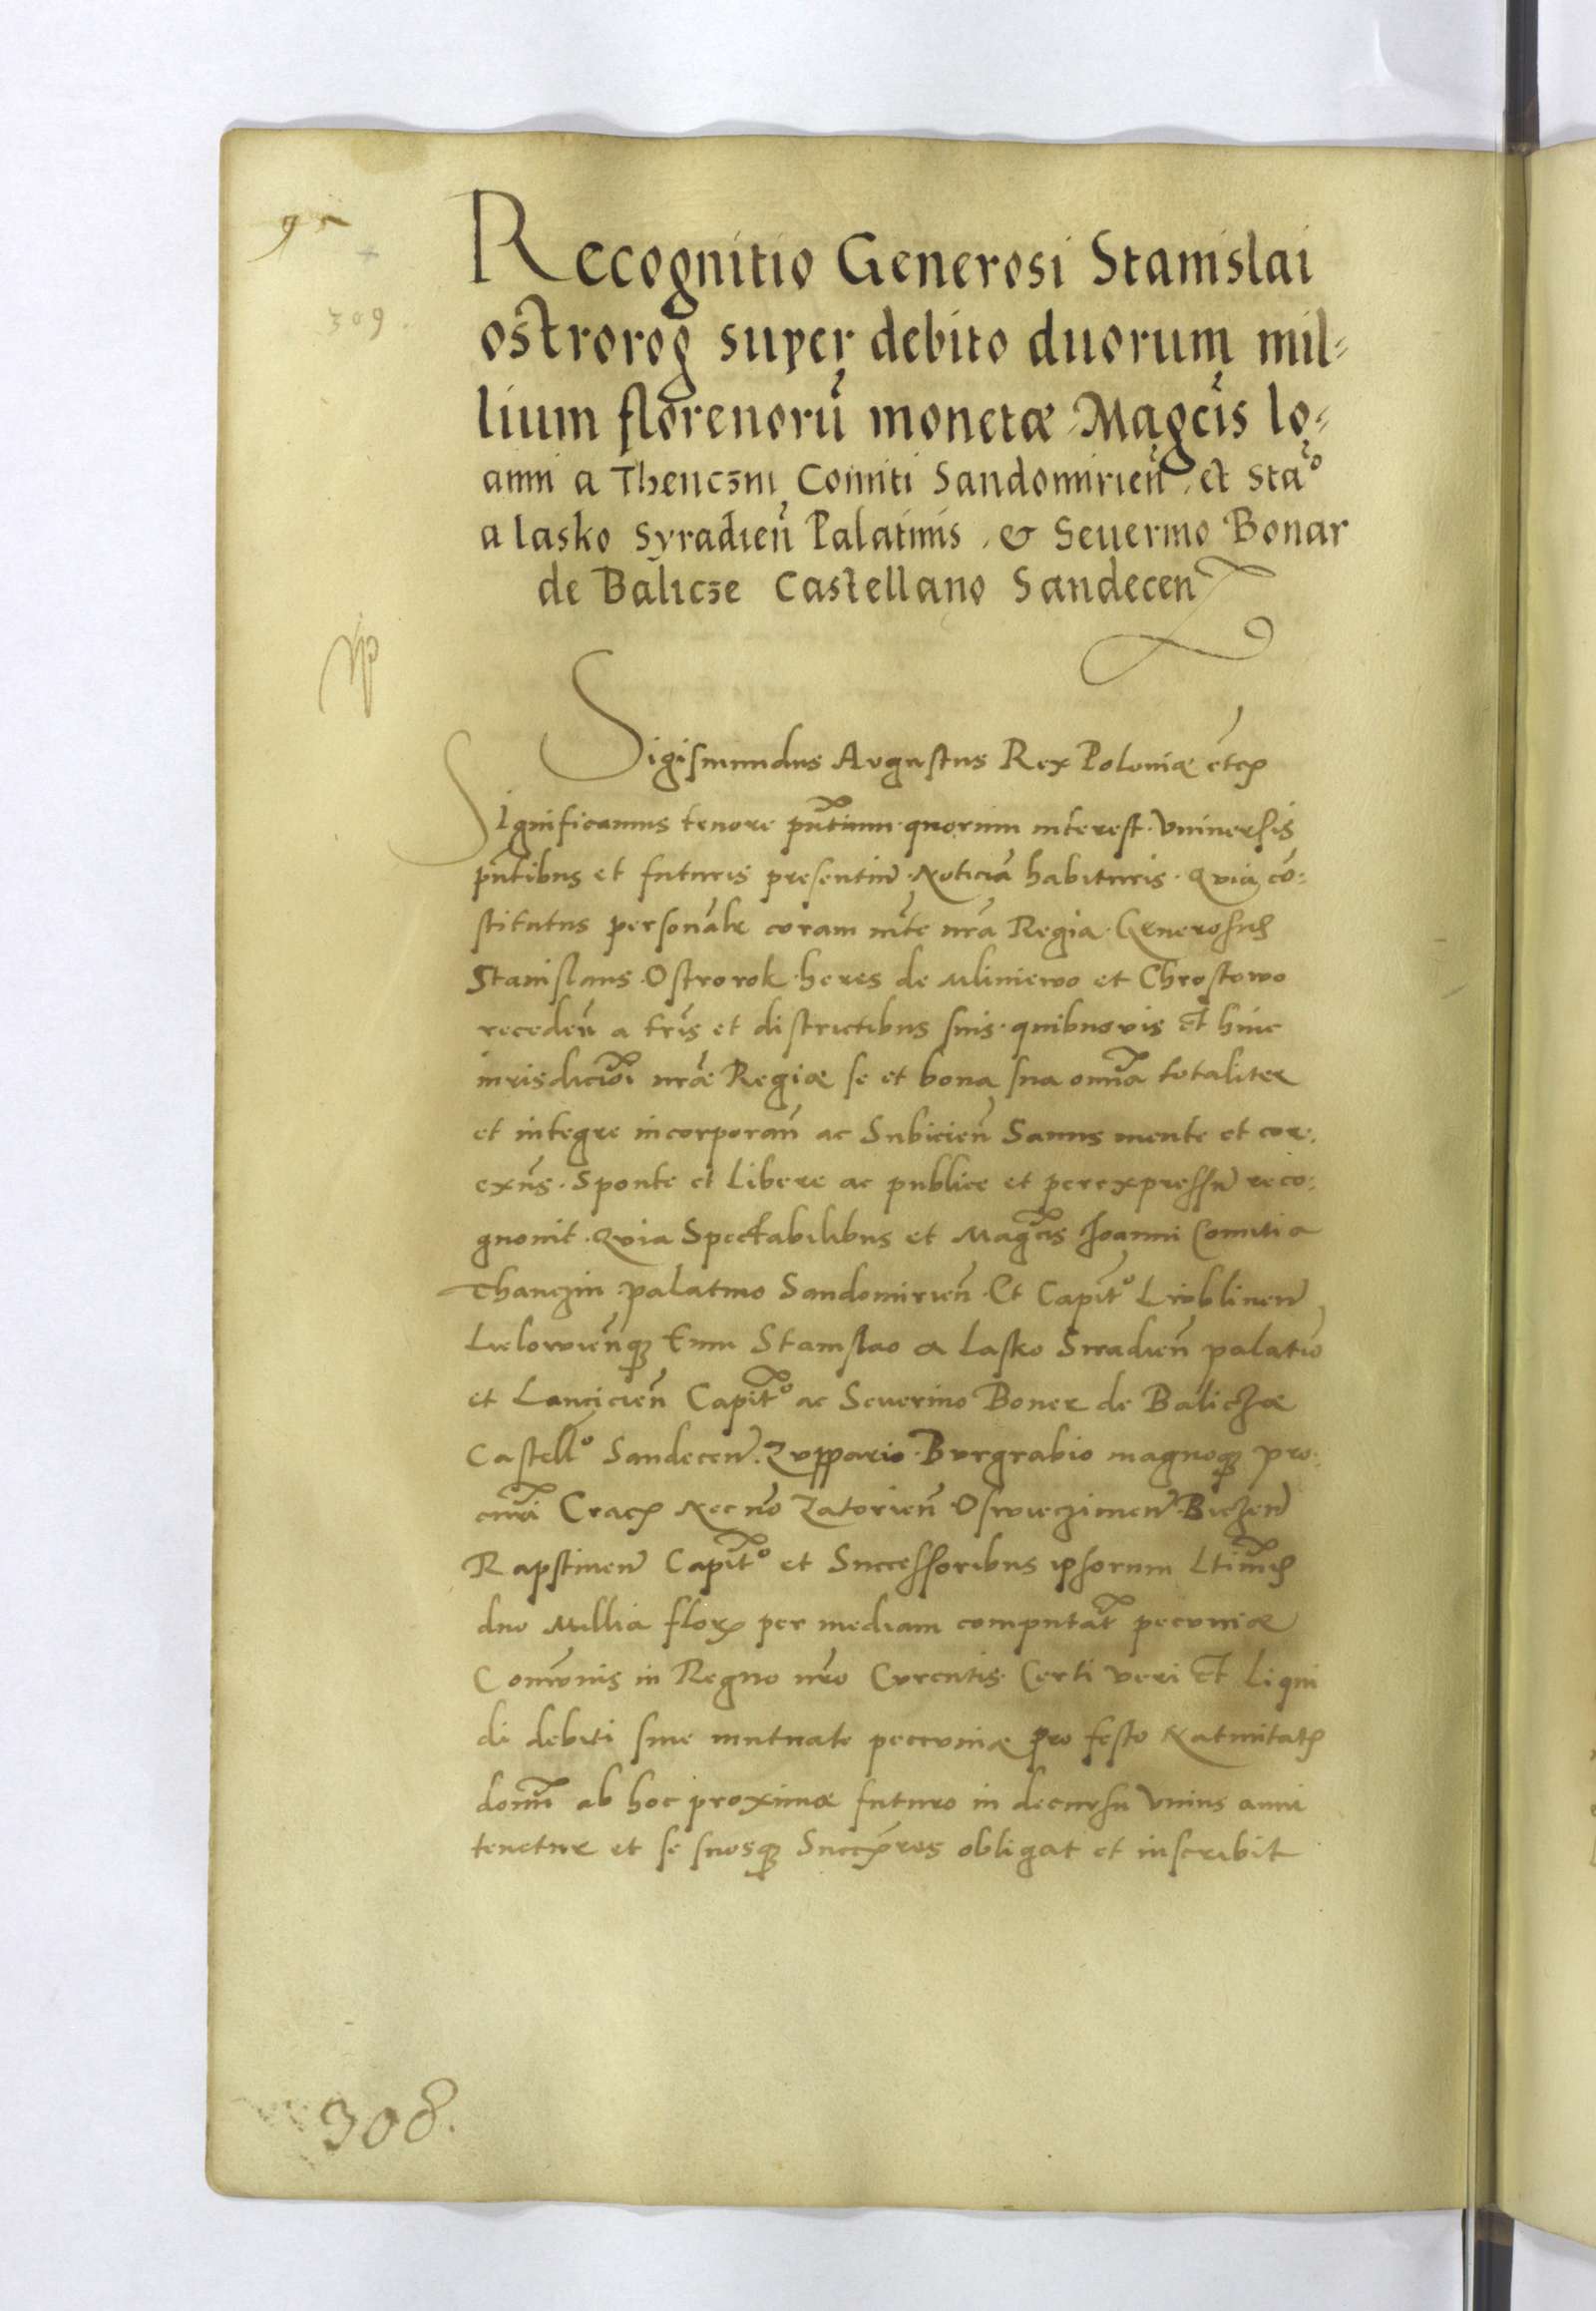 309.
Recognitio Generosi Stanislai
ostrorog super debito duorum mil=
lium florenorũ monetæ Magcĩs Io=
anni a Thenczni Comiti Sandomirieñ et Staº
a lasko Syradieñ Palatinis & Seuerino Bonar
de Balicze Castellano Sandecen
Sigismundus Augustus Rex Poloniæ etcꝭ
Significamus tenore pñtium quorum interest Vniuersis
pñtibus et futuris presentiũ Noticiã habituris. Quia cõ:
stitutus personalr̃ coram mte nrã Regia Generosus
Stanislaus Ostrorok heres de Mliniewo et Chrostowo
recedeñ a tr̃is et districtibus suis quibusvis et huic
iurisdicioni nrãe Regiæ se et bona sua omnia totaliter
et integre incorporañ ac Subicieñ Sanus mente et cor:
exñs. Sponte et Libere ac publice et per expressũ reco:
gnouit. Quia Spectabilibus et Magcis Joanni Comiti a
Thanczin palatino Sandomirieñ Et Capitº Liublinen
Lielowieñqꝫ tum Stanislao a Lasko Siradieñ palatiõ
et Lancicieñ Capitº ac Seuerino Boner de Baliczæ
Castellº Sandecen. Zuppario Burgrabio magnoqꝫ pro:
curi Cracꝭ Necnõ Zatorieñ Oswieczimen Bieczen
Rapstinen Capitº et Successoribus ipsorum Ltimis
duo Millia florꝭ per mediam computat pecuniæ
Com̃unis in Regno nrõ Currentis Certi veri et Liqui
di debiti siue mutuate peccuniæ pro festo Natiuitatꝭ
domi ab hoc proximæ futuro in decursu Vnius anni
tenetur et se suosqꝫ Succr̃es obligat et inscribit
308.